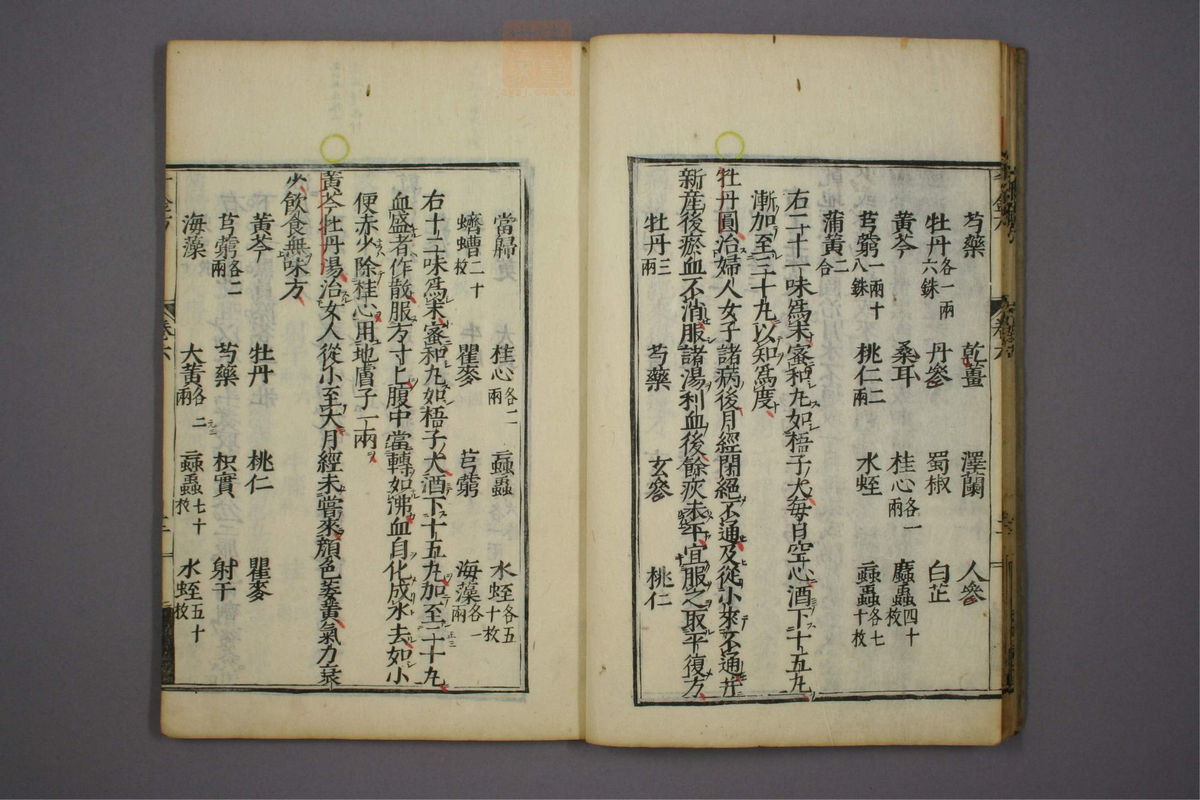 芍藥 乾薑 澤蘭 人參
牡丹各一兩六銖 丹參 蜀椒 白芷
黃芩 桑耳 桂心各一兩 䗪蟲四十枚
芎藭一兩十八銖 桃仁二兩 水蛭 蝱蟲各七十枚
蒲黃二合
右二十一味爲末蜜和丸如梧子大每日空心酒下十五丸
漸加至二十丸以知爲度
牡丹圓治婦人女子諸病後月經閉絕不通及從小來不通幷
新産後瘀血不消服諸湯利血後餘疢未平宜服之取平復方
牡丹三兩 芍藥 玄參 桃仁
當歸 桂心各二兩 蝱蟲 水蛭各五十枚
蠐螬二十枚 瞿麥 芎藭 海藻各一兩
右十二味爲末蜜和丸如梧子大酒下十五丸加至二十丸
血盛者作散服方寸匕腹中當轉如沸血自化成水去如小
便赤少除桂心用地膚子一兩
黃芩牡丹湯治女人從小至大月經未嘗來顏色萎黃氣力衰
少飲食無味方
黃芩 牡丹 桃仁 瞿麥
芎藭各二兩 芍藥 枳實 射干
海藻 大黃各二兩 蝱蟲七十枚 水蛭五十枚
卷六